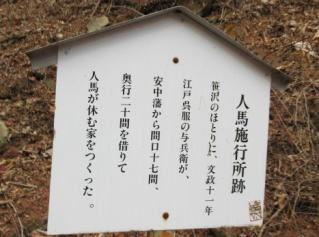 人馬施行所跡
笹沢のほとりに、文政十一年
江戸呉服の与兵衛が、
安中藩から間口十七間、
奥行二十間を借りて
人馬が休む家をつくった。